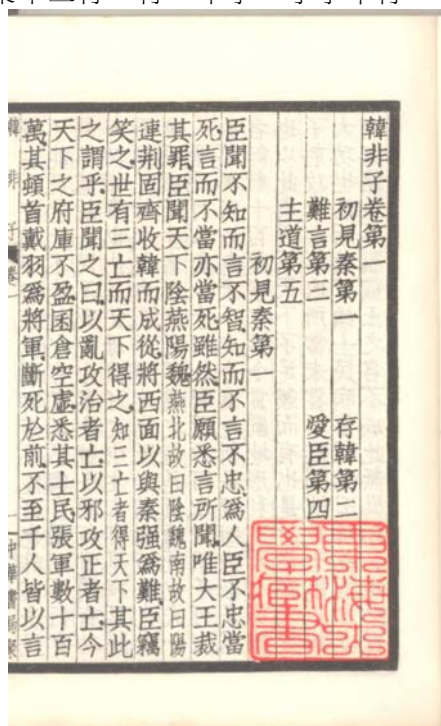 韓非子卷第一
初見秦第一 存韓第二
難言第三 愛臣第四
主道第五
初見秦第一
臣聞不知而言不智知而不言不忠爲人臣不忠當
死言而不當亦當死雖然臣願悉言所聞唯大王裁
其罪臣聞天下陰燕陽魏燕北故曰陰魏南故曰陽
連荆固齊收韓而成從將西面以與秦强爲難臣竊
笑之世有三亡而天下得之知三亡者得天下其此
之謂乎臣聞之曰以亂攻治者亡以邪攻正者亡今
天下之府庫不盈囷倉空虛悉其士民張軍數十百
萬其頓首戴羽爲將軍斷死於前不至千人皆以言
韓非子 卷一 一 中華書局聚